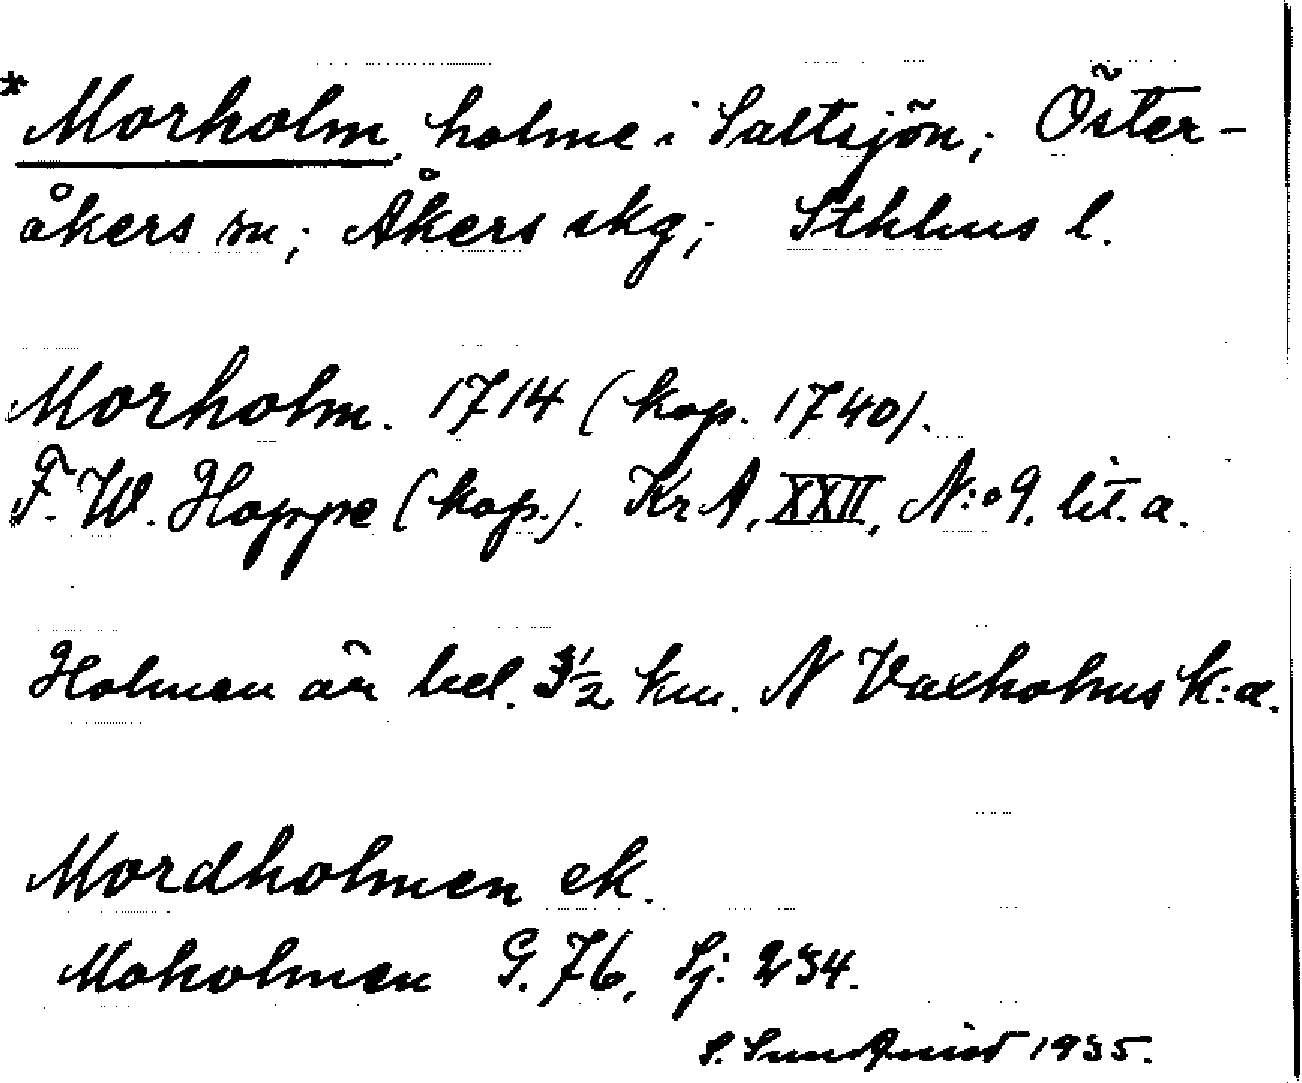 * Morholm, holme i Saltsjön; Öster-
åkers sn; Åkers skg; Sthlms l.
Morholm. 1714 (kop. 1740).
F. W. Hoppe (kop.). KrA, XXII, N:o 9. lit. a.
Holmen är bel. 3 1/2 km. N Vaxholms k:a.
Mordholmen ek.
Moholmen G. 76, Sj: 234.
S. Sundqvist 1935.